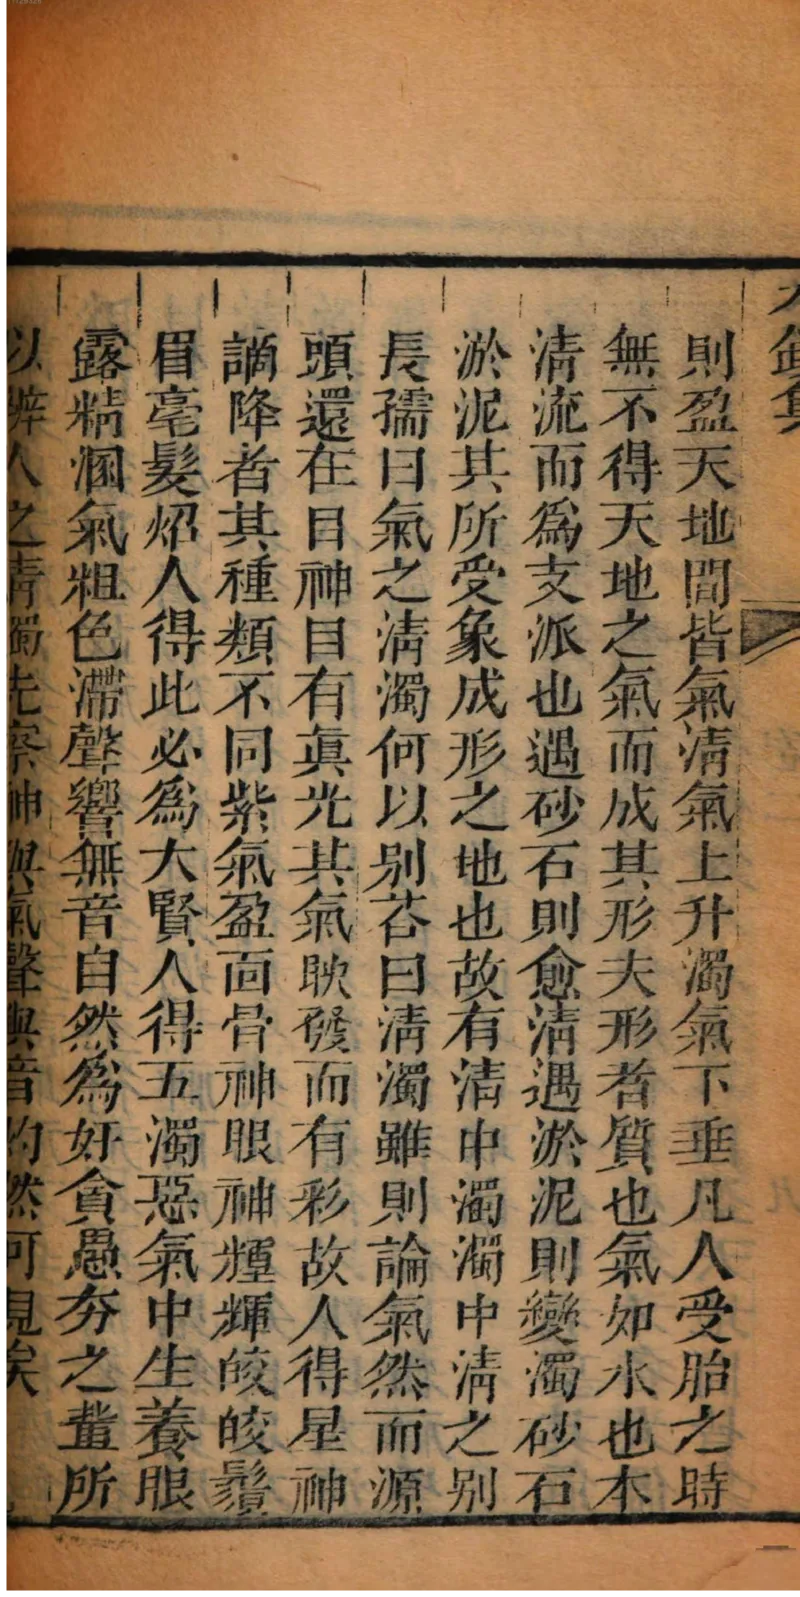 則盈天地間皆氣淸氣上升濁氣下垂凡人受胎之時
無不得天地之氣而成其形夫形者質也氣如水也本
淸流而爲支派也遇砂石則愈淸遇淤泥則變濁砂石
淤泥其所受象成形之地也故有淸中濁濁中淸之别
長孺曰氣之淸濁何以别荅曰淸濁雖則論氣然而源
頭還在目神目有眞光其氣映發而有彩故人得星神
謫降者其種類不同紫氣盈面骨神眼神輝皎皎鬚
眉毫髮炤人得此必爲大賢人得五濁惡氣中生養眼
露精溷氣粗色滯聲響無音自然爲奸貪愚夯之輩所
以辨人之淸濁先察神與氣聲與音灼然可見矣